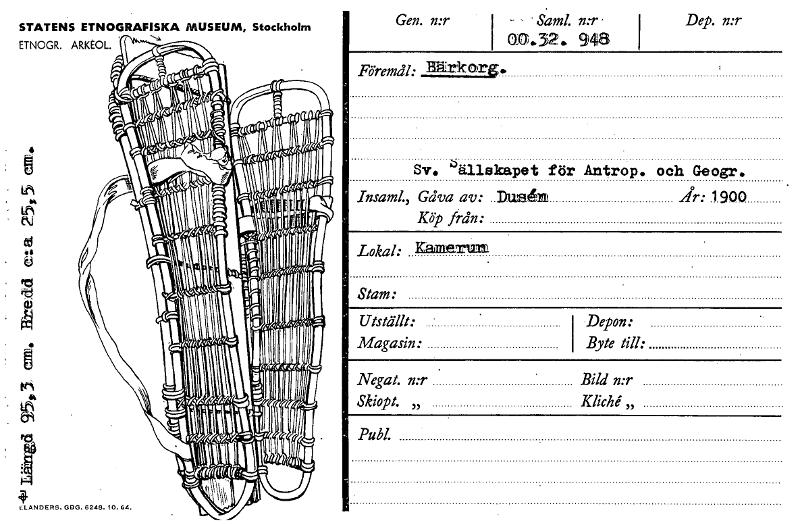 STATENS ETNOGRAFISKA MUSEUM, Stockholm
ETNOGR. ARKEOL.
Längd 95,3 cm. Bredd c:a 25,5 cm.
ELANDERS. GBG. 6248. 10. 64.
Gen. n:r Saml. n:r Dep. n:r
00.32. 948
Föremål: Bärkorg.
Sv. Sällskapet för Antrop. och Geogr.
Insaml., Gåva av: Dusén År: 1900
Köp från:
Lokal: Kamerun
Stam:
Utställt: Depon:
Magasin: Byte till:
Negat. n:r Bild n:r
Skiopt. „ Kliché „
Publ.